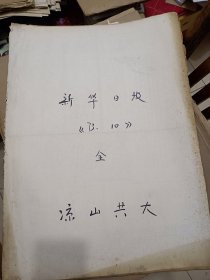 新华日报
《73.10》
全
凉山共大